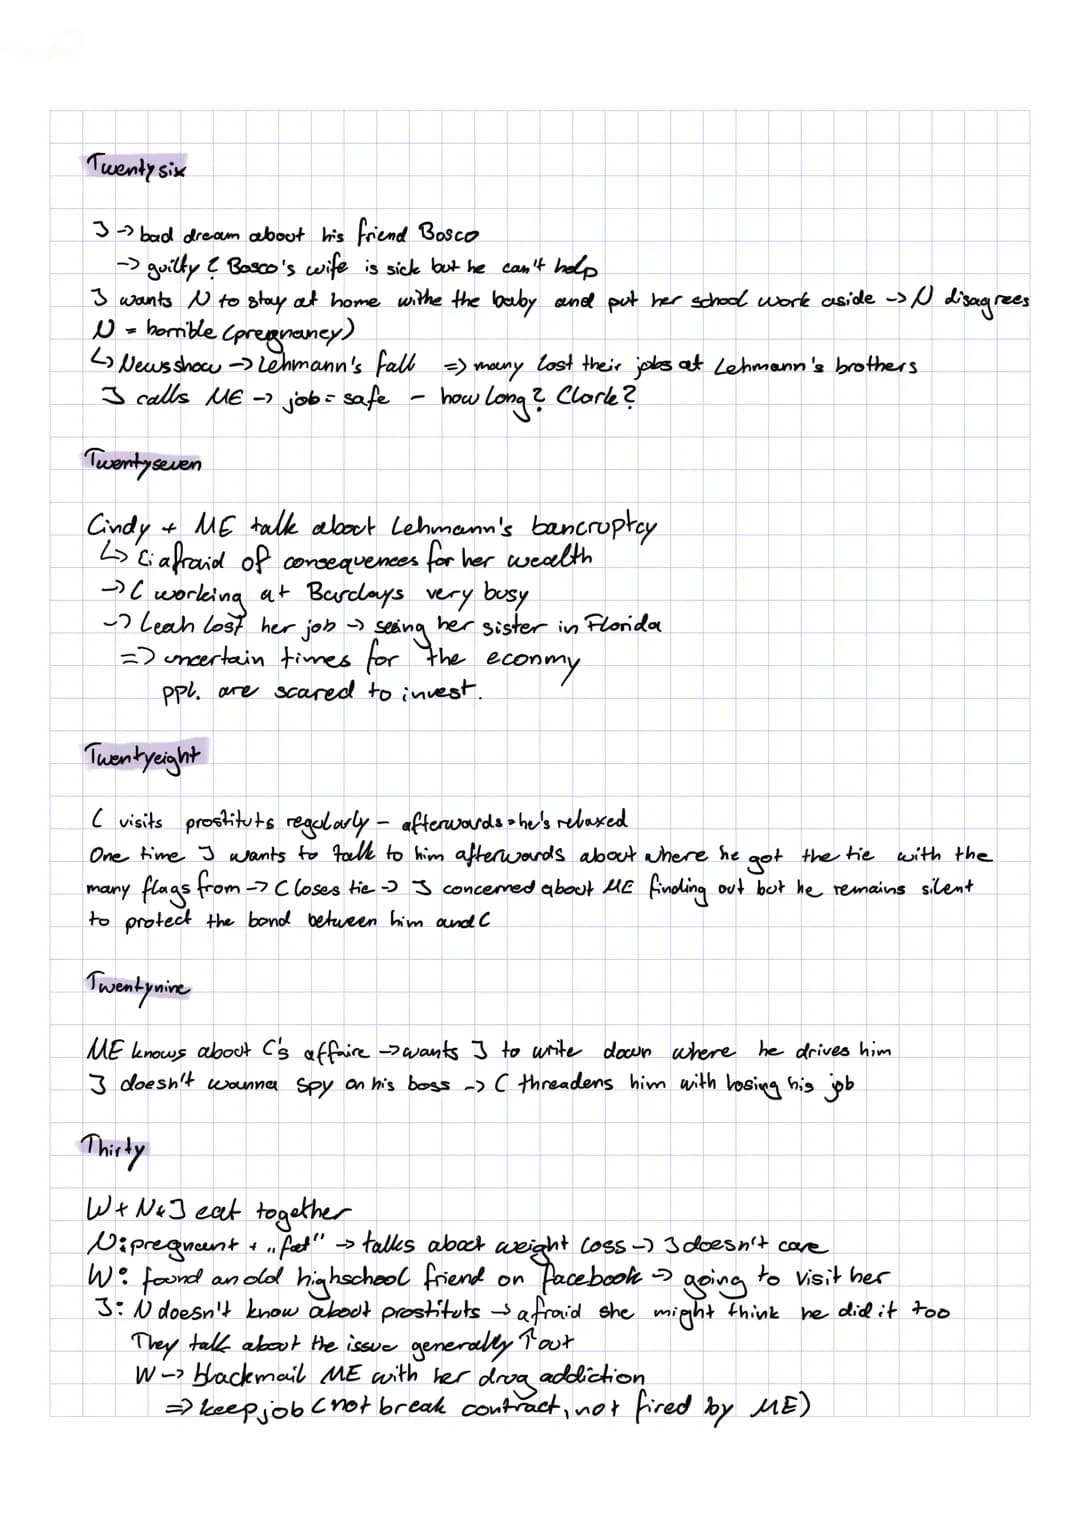 Twenty six
J -> bad dream about his friend Bosco
-> guilty ? Bosco's wife is sick but he can't help
J wants N to stay at home withe the baby and put her school work aside -> N disagrees
N = horrible (pregnancy)
↳ News show -> Lehmann's fall => many lost their jobs at Lehmann's brothers
J calls ME -> job = safe - how long? Clark?
Twentyseven
Cindy + ME talk about Lehmann's bancruptcy
↳ Ci afraid of consequences for her wealth
-> C working at Barclays very busy
-> Leah lost her job -> seeing her sister in Florida
=> uncertain times for the econmy
ppl. are scared to invest.
Twentyeight
C visits prostituts regularly - afterwards = he's relaxed
One time J wants to talk to him afterwards about where he got the tie with the
many flags from -> C loses tie -> J concerned about ME finding out but he remains silent
to protect the bond between him and C
Twentynine
ME knows about C's affaire -> wants J to write down where he drives him
J doesn't wanna spy on his boss -> C threadens him with losing his job
Thirty
W + N & J eat together
N: pregnant + „fat" -> talks about weight loss -> J doesn't care
W: found an old highschool friend on facebook -> going to visit her
J: N doesn't know about prostituts -> afraid she might think he did it too
They talk about the issue generally ↑ out
W -> blackmail ME with her drug addiction
=> keep job (not break contract, not fired by ME)